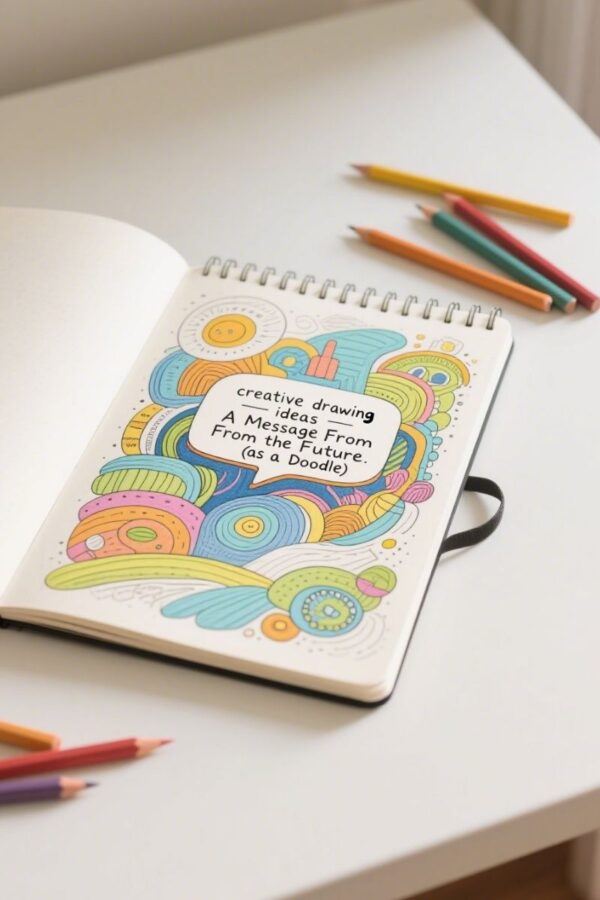 creative drawing
— ideas —
A Message From
From the Future.
(as a Doodle)